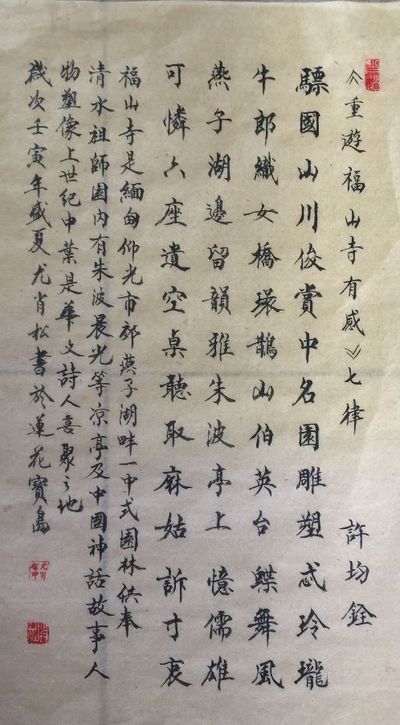 《重遊福山寺有感》七律 許均銓
驃國山川俊賞中名園雕塑忒玲瓏
牛郎纖女橋環鵲山伯英台蝶舞風
燕子湖邊留韻雅朱波亭上憶儒雄
可憐六座遺空桌聽取麻姑訴寸衷
福山寺是緬甸仰光市郊燕子湖畔一中式園林供奉
清水祖師園内有朱波晨光等凉亭及中國神話故事人
物塑像上世纪中葉是華文詩人喜聚之地
歲次壬寅年盛夏尤肖松書於蓮花寶島